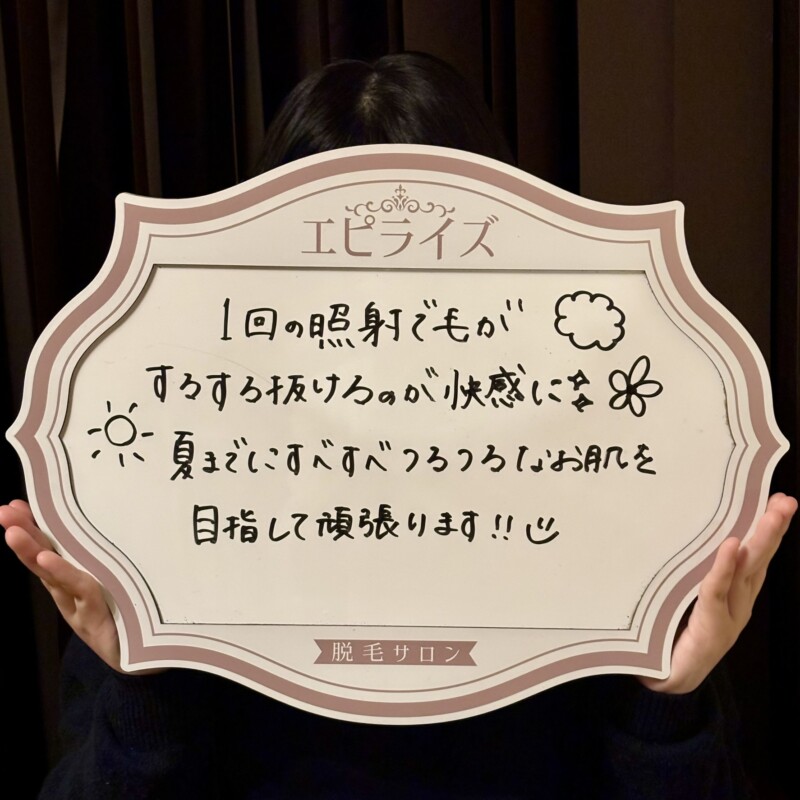 エピライズ
1回の照射で毛が
するする抜けるのが快感に
夏までにすべすべつるつるなお肌を
目指して頑張ります!!
脱毛サロン